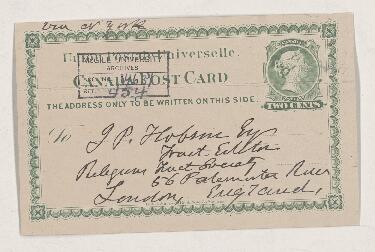 via N York
Union Postale Universelle
McGILL UNIVERSITY
ARCHIVES
ACC. NO.
REF. 434
CANADA POST CARD
THE ADDRESS ONLY TO BE WRITTEN ON THIS SIDE.
TWO CENTS
To
J P. Hobson Esq
Tract Editor
Religious Tract Society
56 Paternoster Row
London, England,